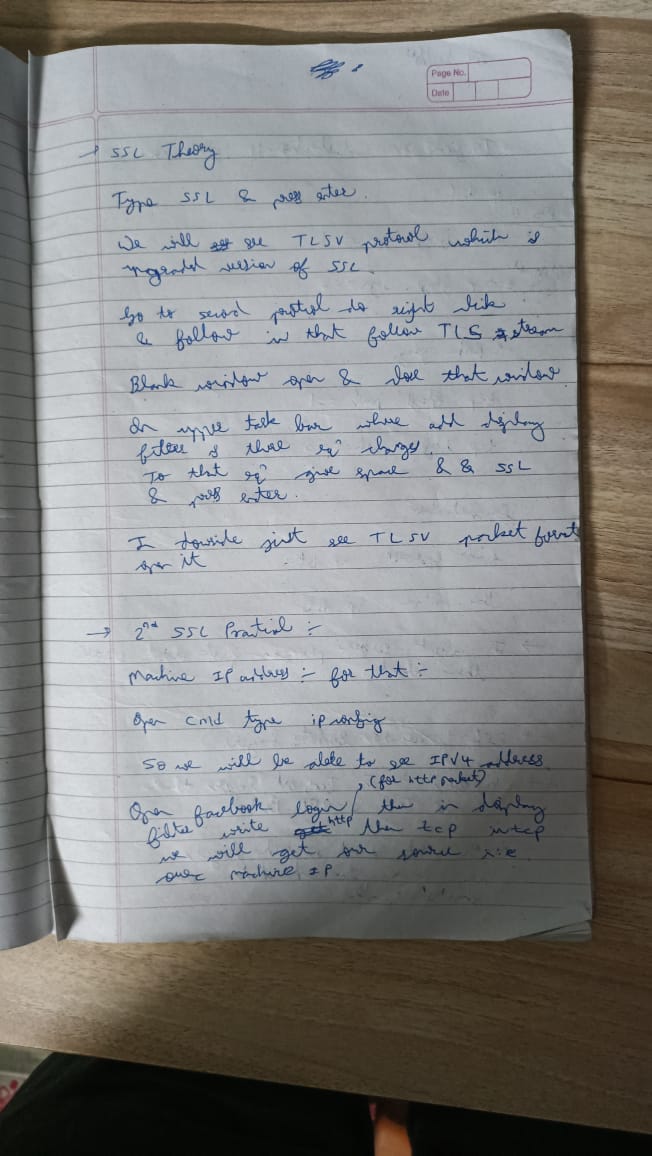 Page No.
Date
→ SSL Theory
Type SSL & press enter.
We will see TLSV protocol which is
upgraded version of SSL.
Go to second protocol do right click
& follow in that follow TLS stream
Blank window open & close that window.
In upper task bar where add display
filter is there eqⁿ changes.
To that eqⁿ give space && SSL
& press enter.
I downside just see TLSV packet
open it
→ 2nd SSL Practical :-
Machine IP address :- for that :-
Open cmd type ipconfig
So we will be able to see IPV4 address.
(for http packet)
Open facebook login, then in display
filter write http then tcp in tcp
we will get our source i.e
our machine IP.